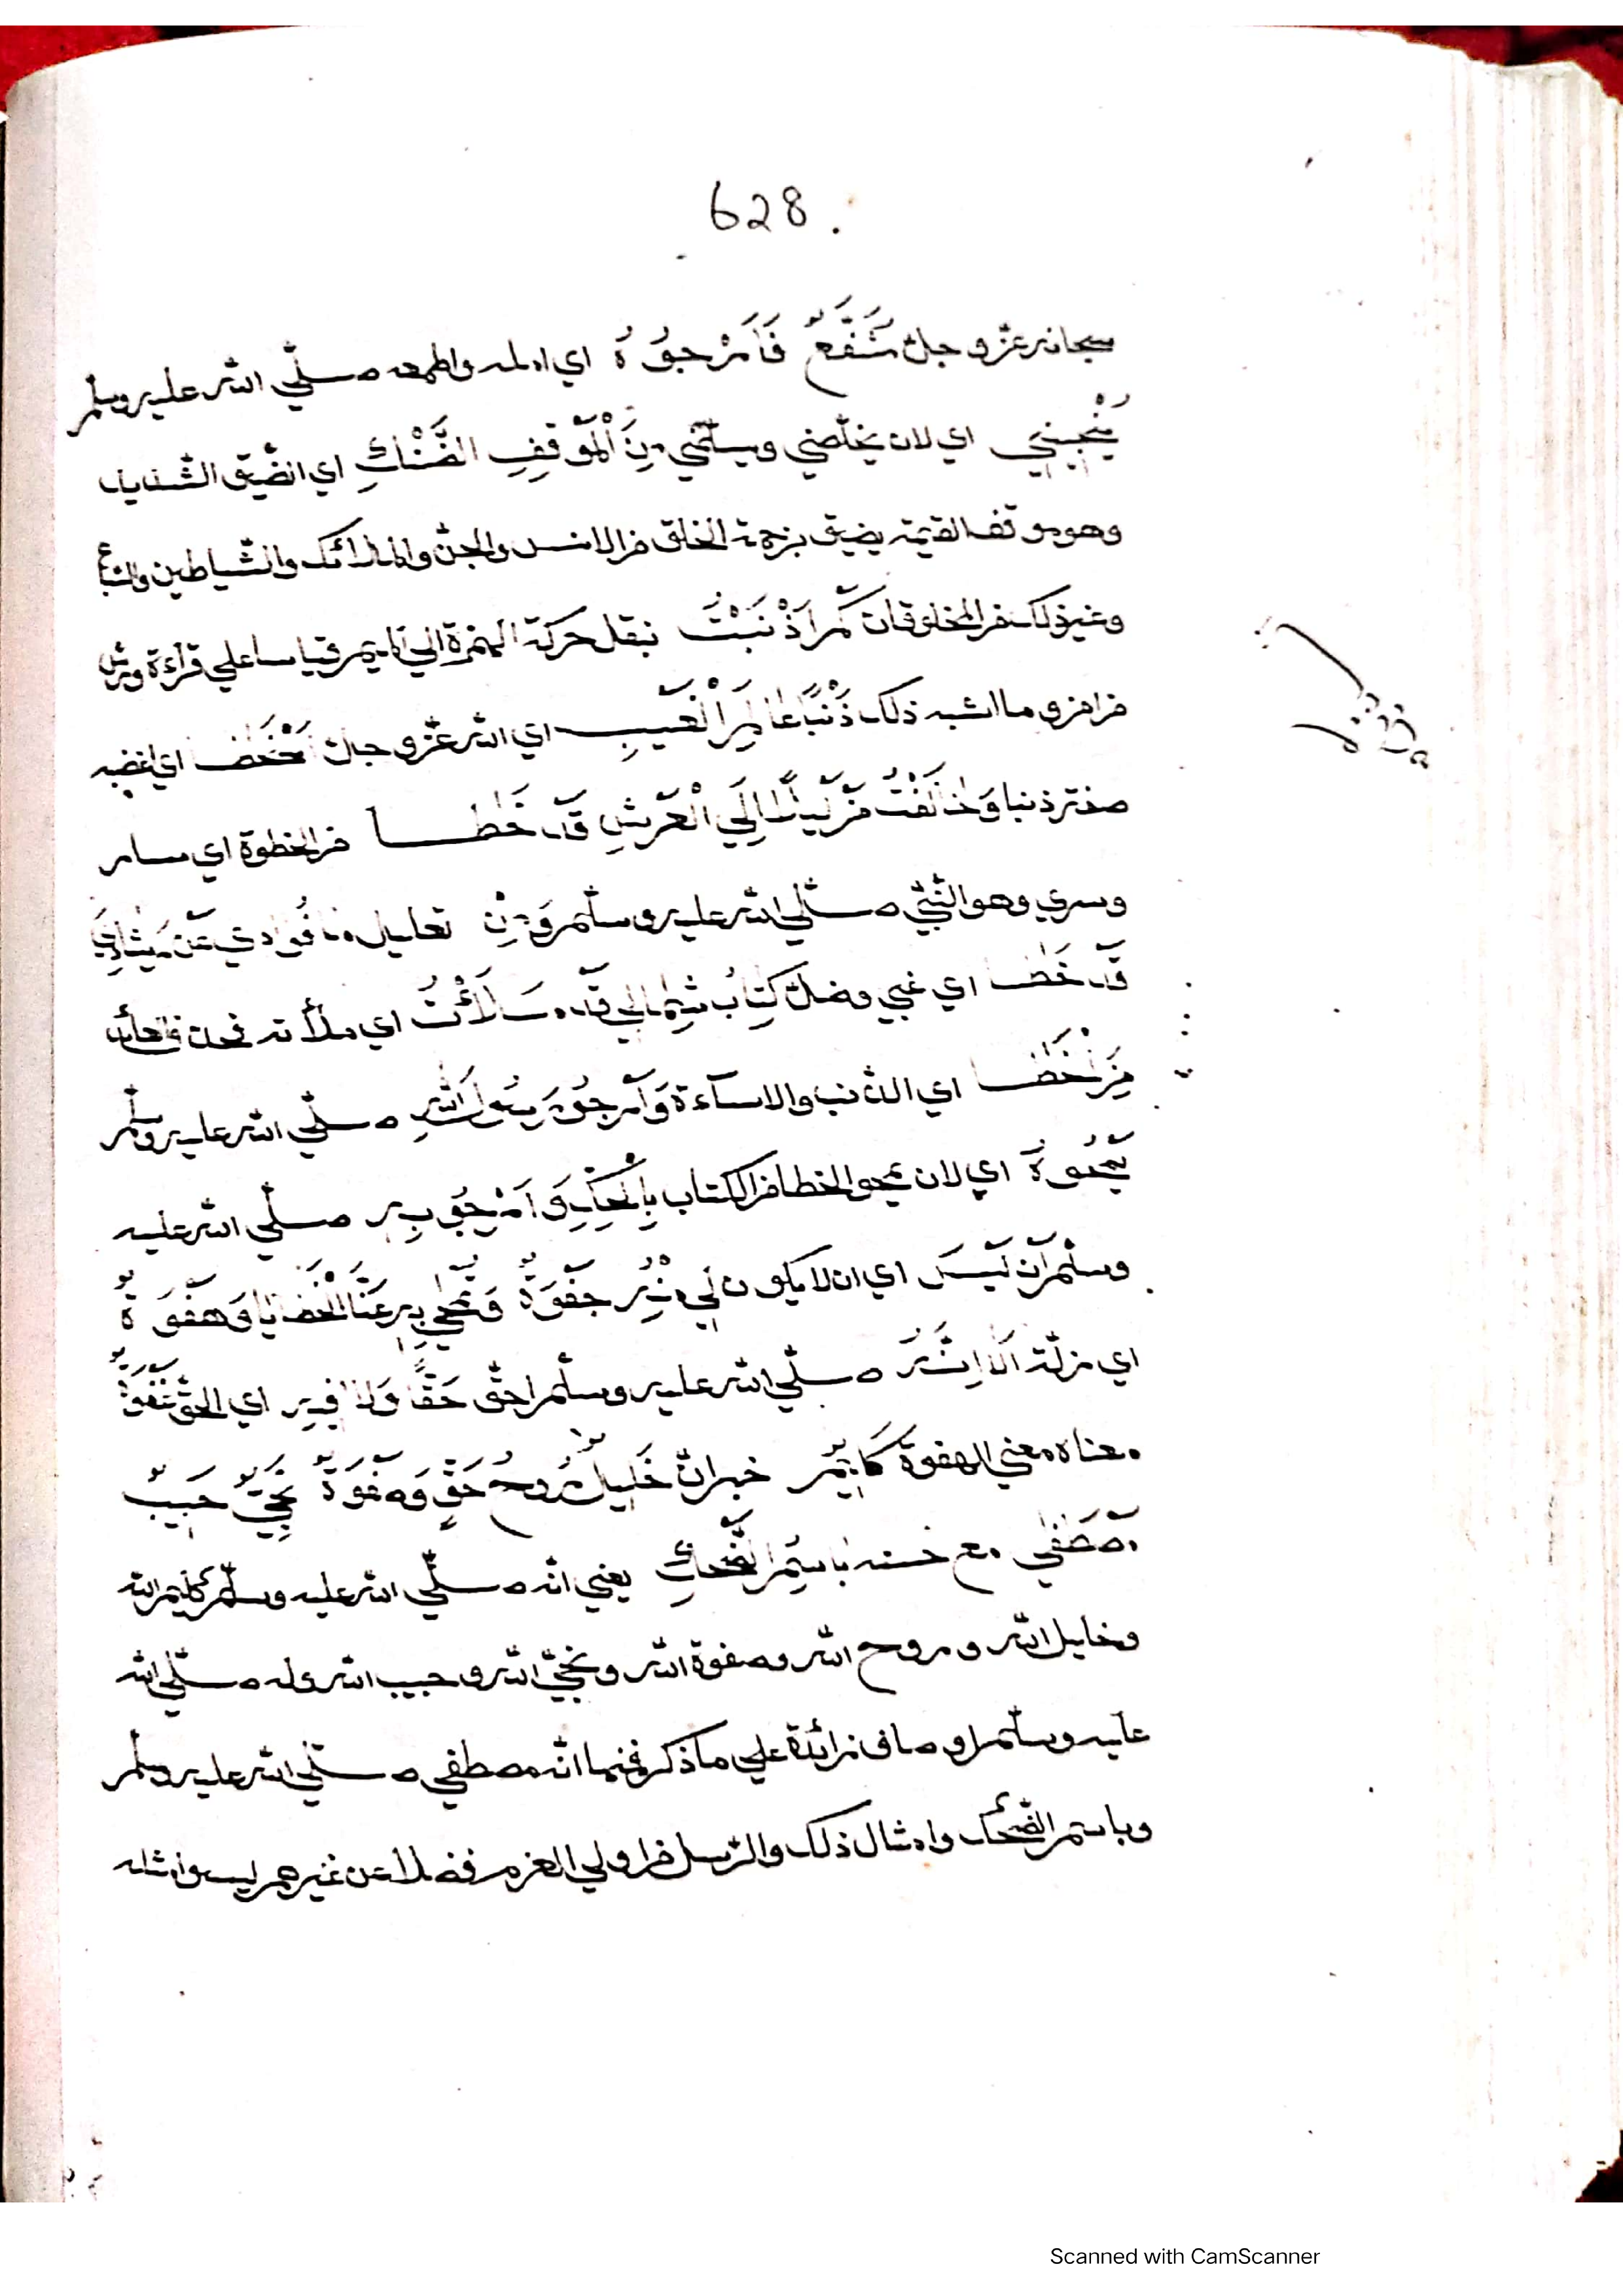 628.
سبحانه عز وجل مُشَفَّعٌ فَاَرْجُوْهُ اي اءمله واطمعه صلّي الله عليه وسلم
يُنْجِيْنِي اي لان يخلّصني ويسلّمني مِنَ الْمَوْقِفِ الضَّنْكِ اي الضّيق الشديد
وهو موقف القيمة يضيق بزحمة الخلق من الانس والجنّ والملائك والشياطين والسباع
وغير ذلك من المخلوقات كَمَ اَذْنَبْتُ بنقل حركة الهمزة الي الميم قياسا علي قراءة ورش
من امن وما اشبه ذلك ذَنْبًا عَالِمَ الْغَيْبِ اي الله عز وجل اي اغضبه
صفة ذنبا وَخَالَفْتُ مَنْ لَيْلًا اِلَي الْعَرْشِ قَدْ خَطَا من الخطوة اي سار
وسري وهو النّبيّ صلّي الله عليه وسلّم وَمِنْ تعليل فُؤَادِي عَنْ رَشَادِيْ
قَدْ غَطَا اي غبي وضلّ كِتَابُ شِمَالِي قَدْ مَلَأْتُ اي ملأته
مِنَ الْخَطَا اي الذّنب والاساءة وَاَرْجُوْ رَسُوْلَ اللهِ صلّي الله عليه وسلم
يَمْحُوْهُ اي لان يمحو الخطا من الكتاب بِالْحَكِّ وَاَرْجُوْ بِهِ صلّي الله عليه
وسلّم اَنْ لَيْسَ اي ان لا يكون لِي جَفْوَةٌ وَتُمْحٰي بِهِ عَنَّا الْخَطَايَا وَهَفْوَةٌ
اي مزلّة اَلَا اِنَّهُ صلّي الله عليه وسلّم احق حَقًّا وَلَا فِيْهِ اي الحقّ
معناه معني الهفوة كَلِيْمٌ خبر انّ خَلِيْلٌ رُوْحُ حَقٍّ وَصَفْوَةٌ نَجِيٌّ حَبِيْبٌ
مُصْطَفٰي مع حسنه بَاسِمُ الضِّحْكِ يعني انه صلّي الله عليه وسلّم كليم الله
وخليل الله وروح الله وصفوة الله ونجيّ الله وحبيب الله وله صلّي الله
عليه وسلّم اوصاف زائدة علي ما ذكر فمنها انه مصطفي صلّي الله عليه وسلم
وباسم الضّحك وامثال ذلك والرّسل من اولي العزم فضلا عن غيرهم ليسوا مثله
Scanned with CamScanner